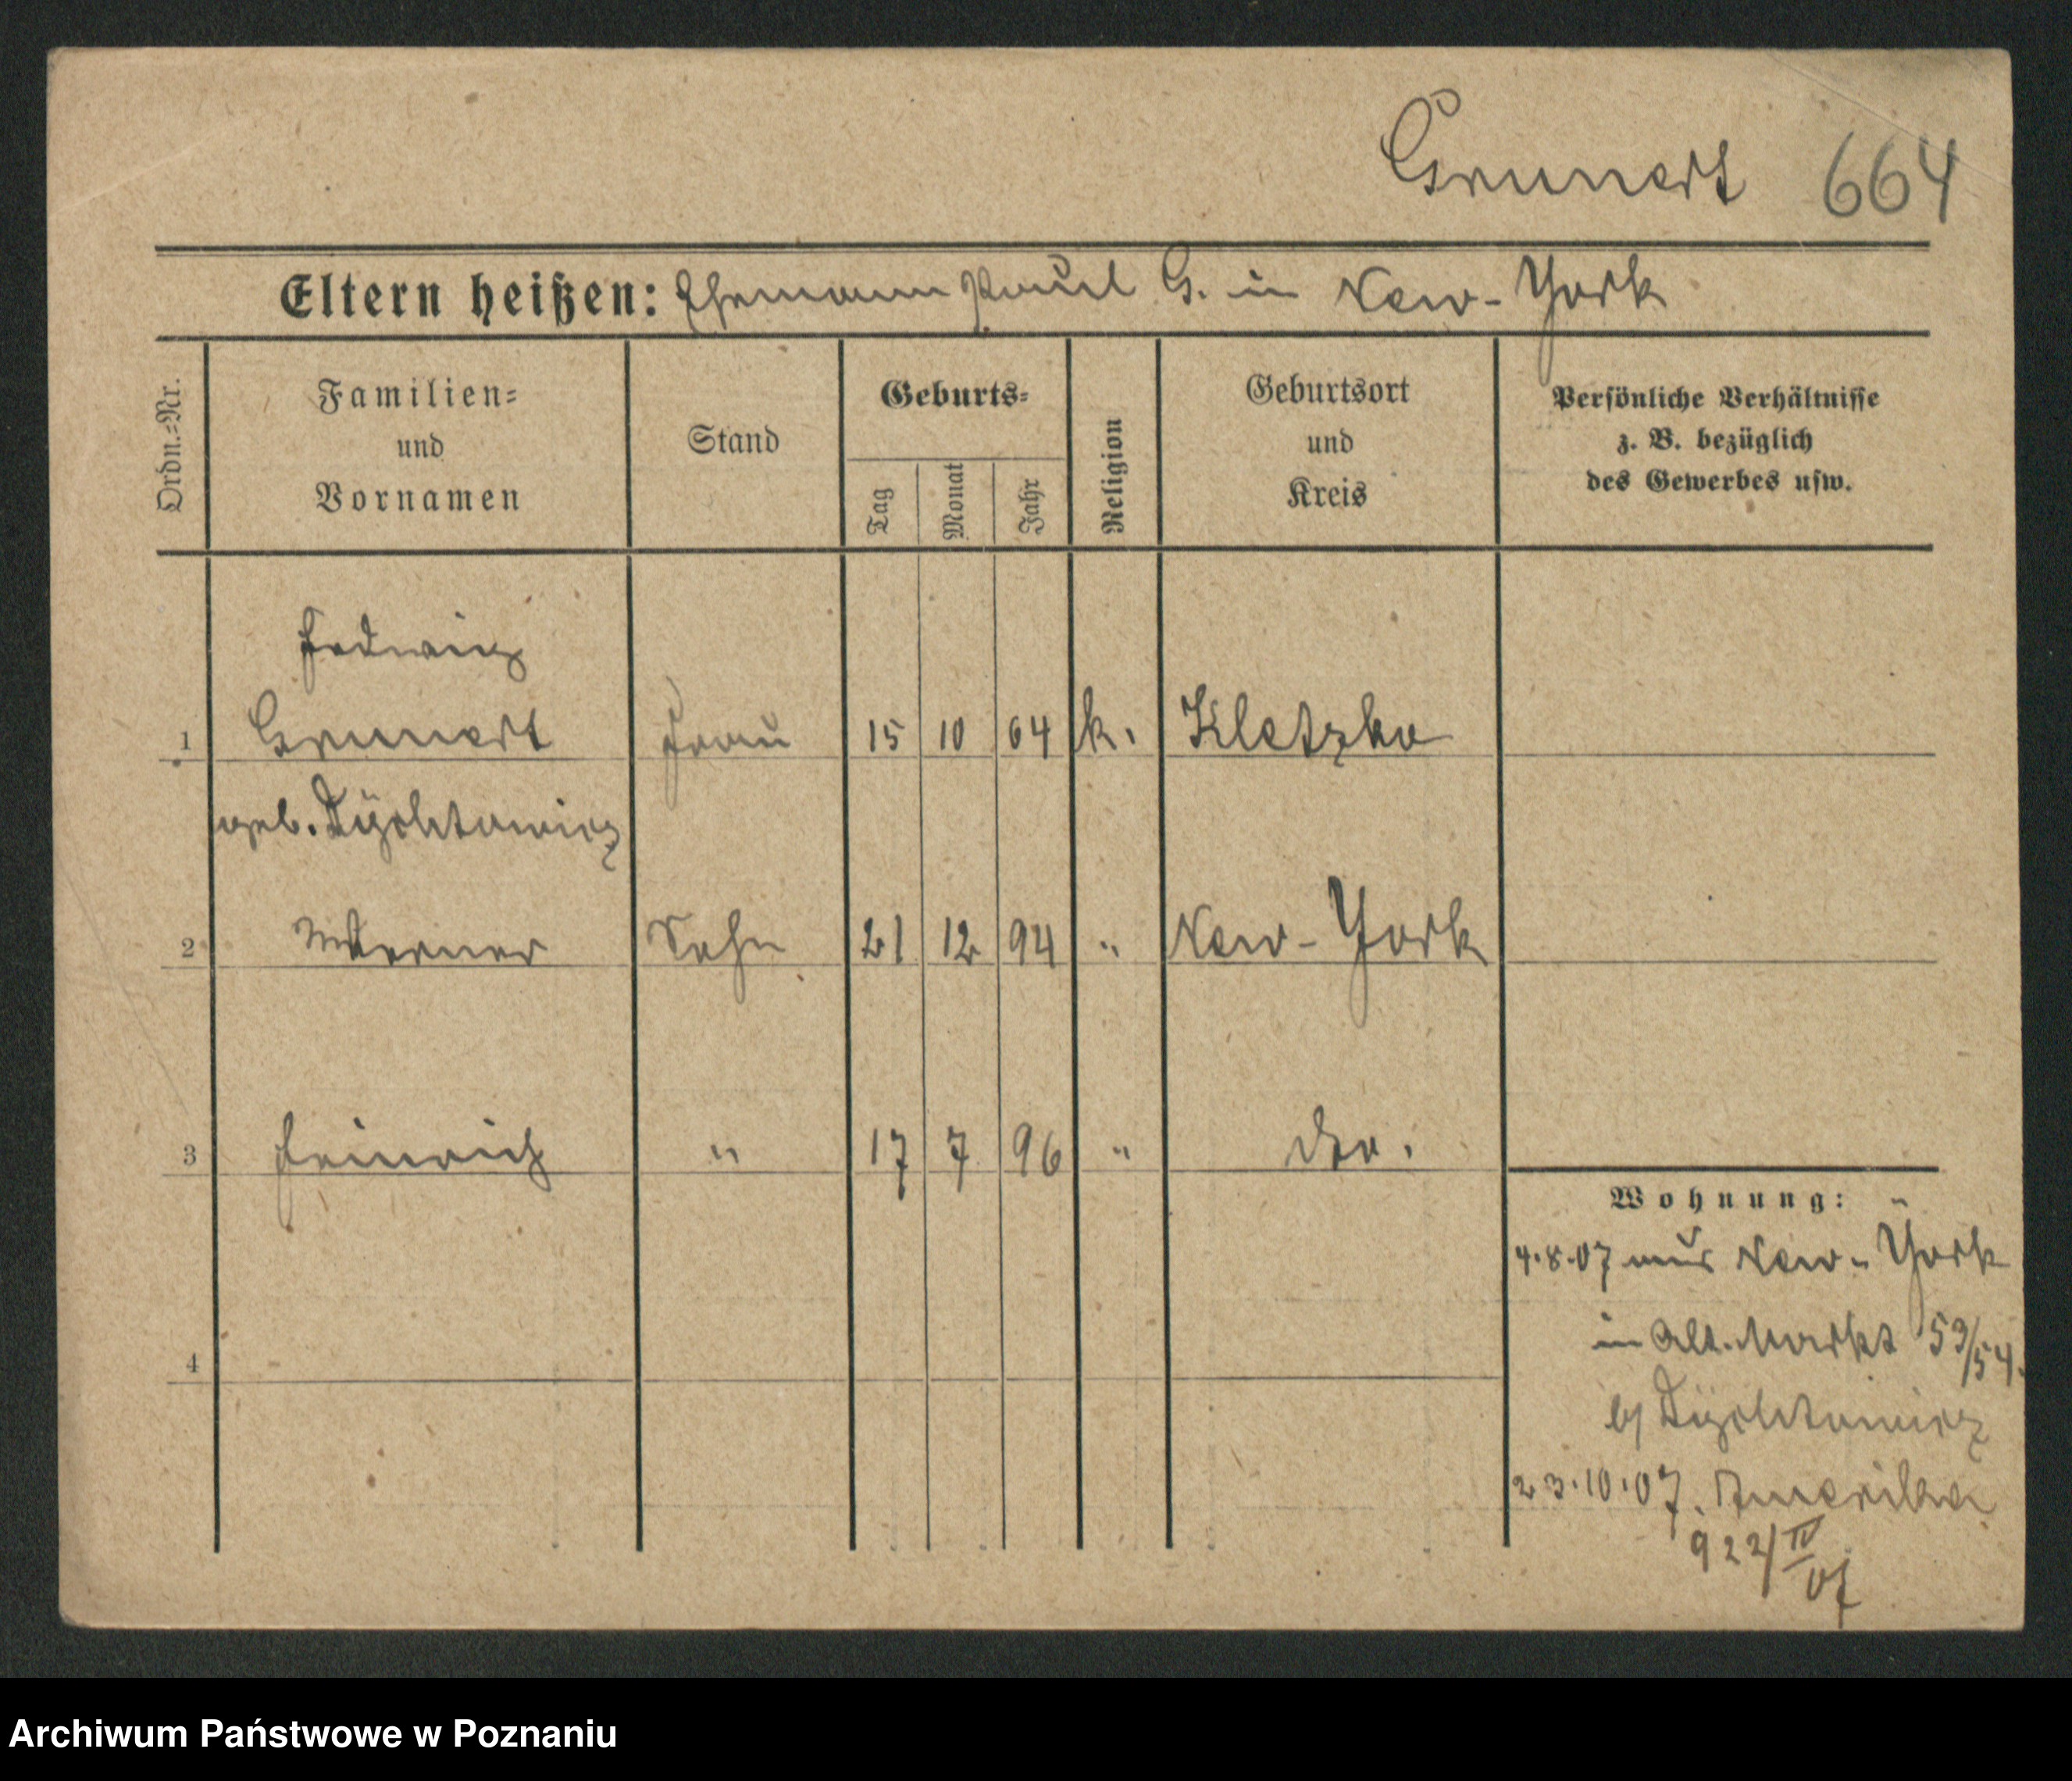 Grunert 664
Eltern heißen: Ehemann Paul G. in New-York
Ordn.=Nr.
Familien=
und
Vornamen
Stand
Geburts=
Tag
Monat
Jahr
Religion
Geburtsort
und
Kreis
Persönliche Verhältnisse
z. B. bezüglich
des Gewerbes usw.
Hedwig
1 Grunert Frau 15 10 64 k. Kletzko
geb.
2 Werner Sohn 21 12 94 " New-York
3 Heinrich " 17 7 96 " do.
Wohnung:
4.8.07 aus New-York
in Alt. Markt 53/54.
b/
4
23.10.07. Amerika
922/IV
07
Archiwum Państwowe w Poznaniu